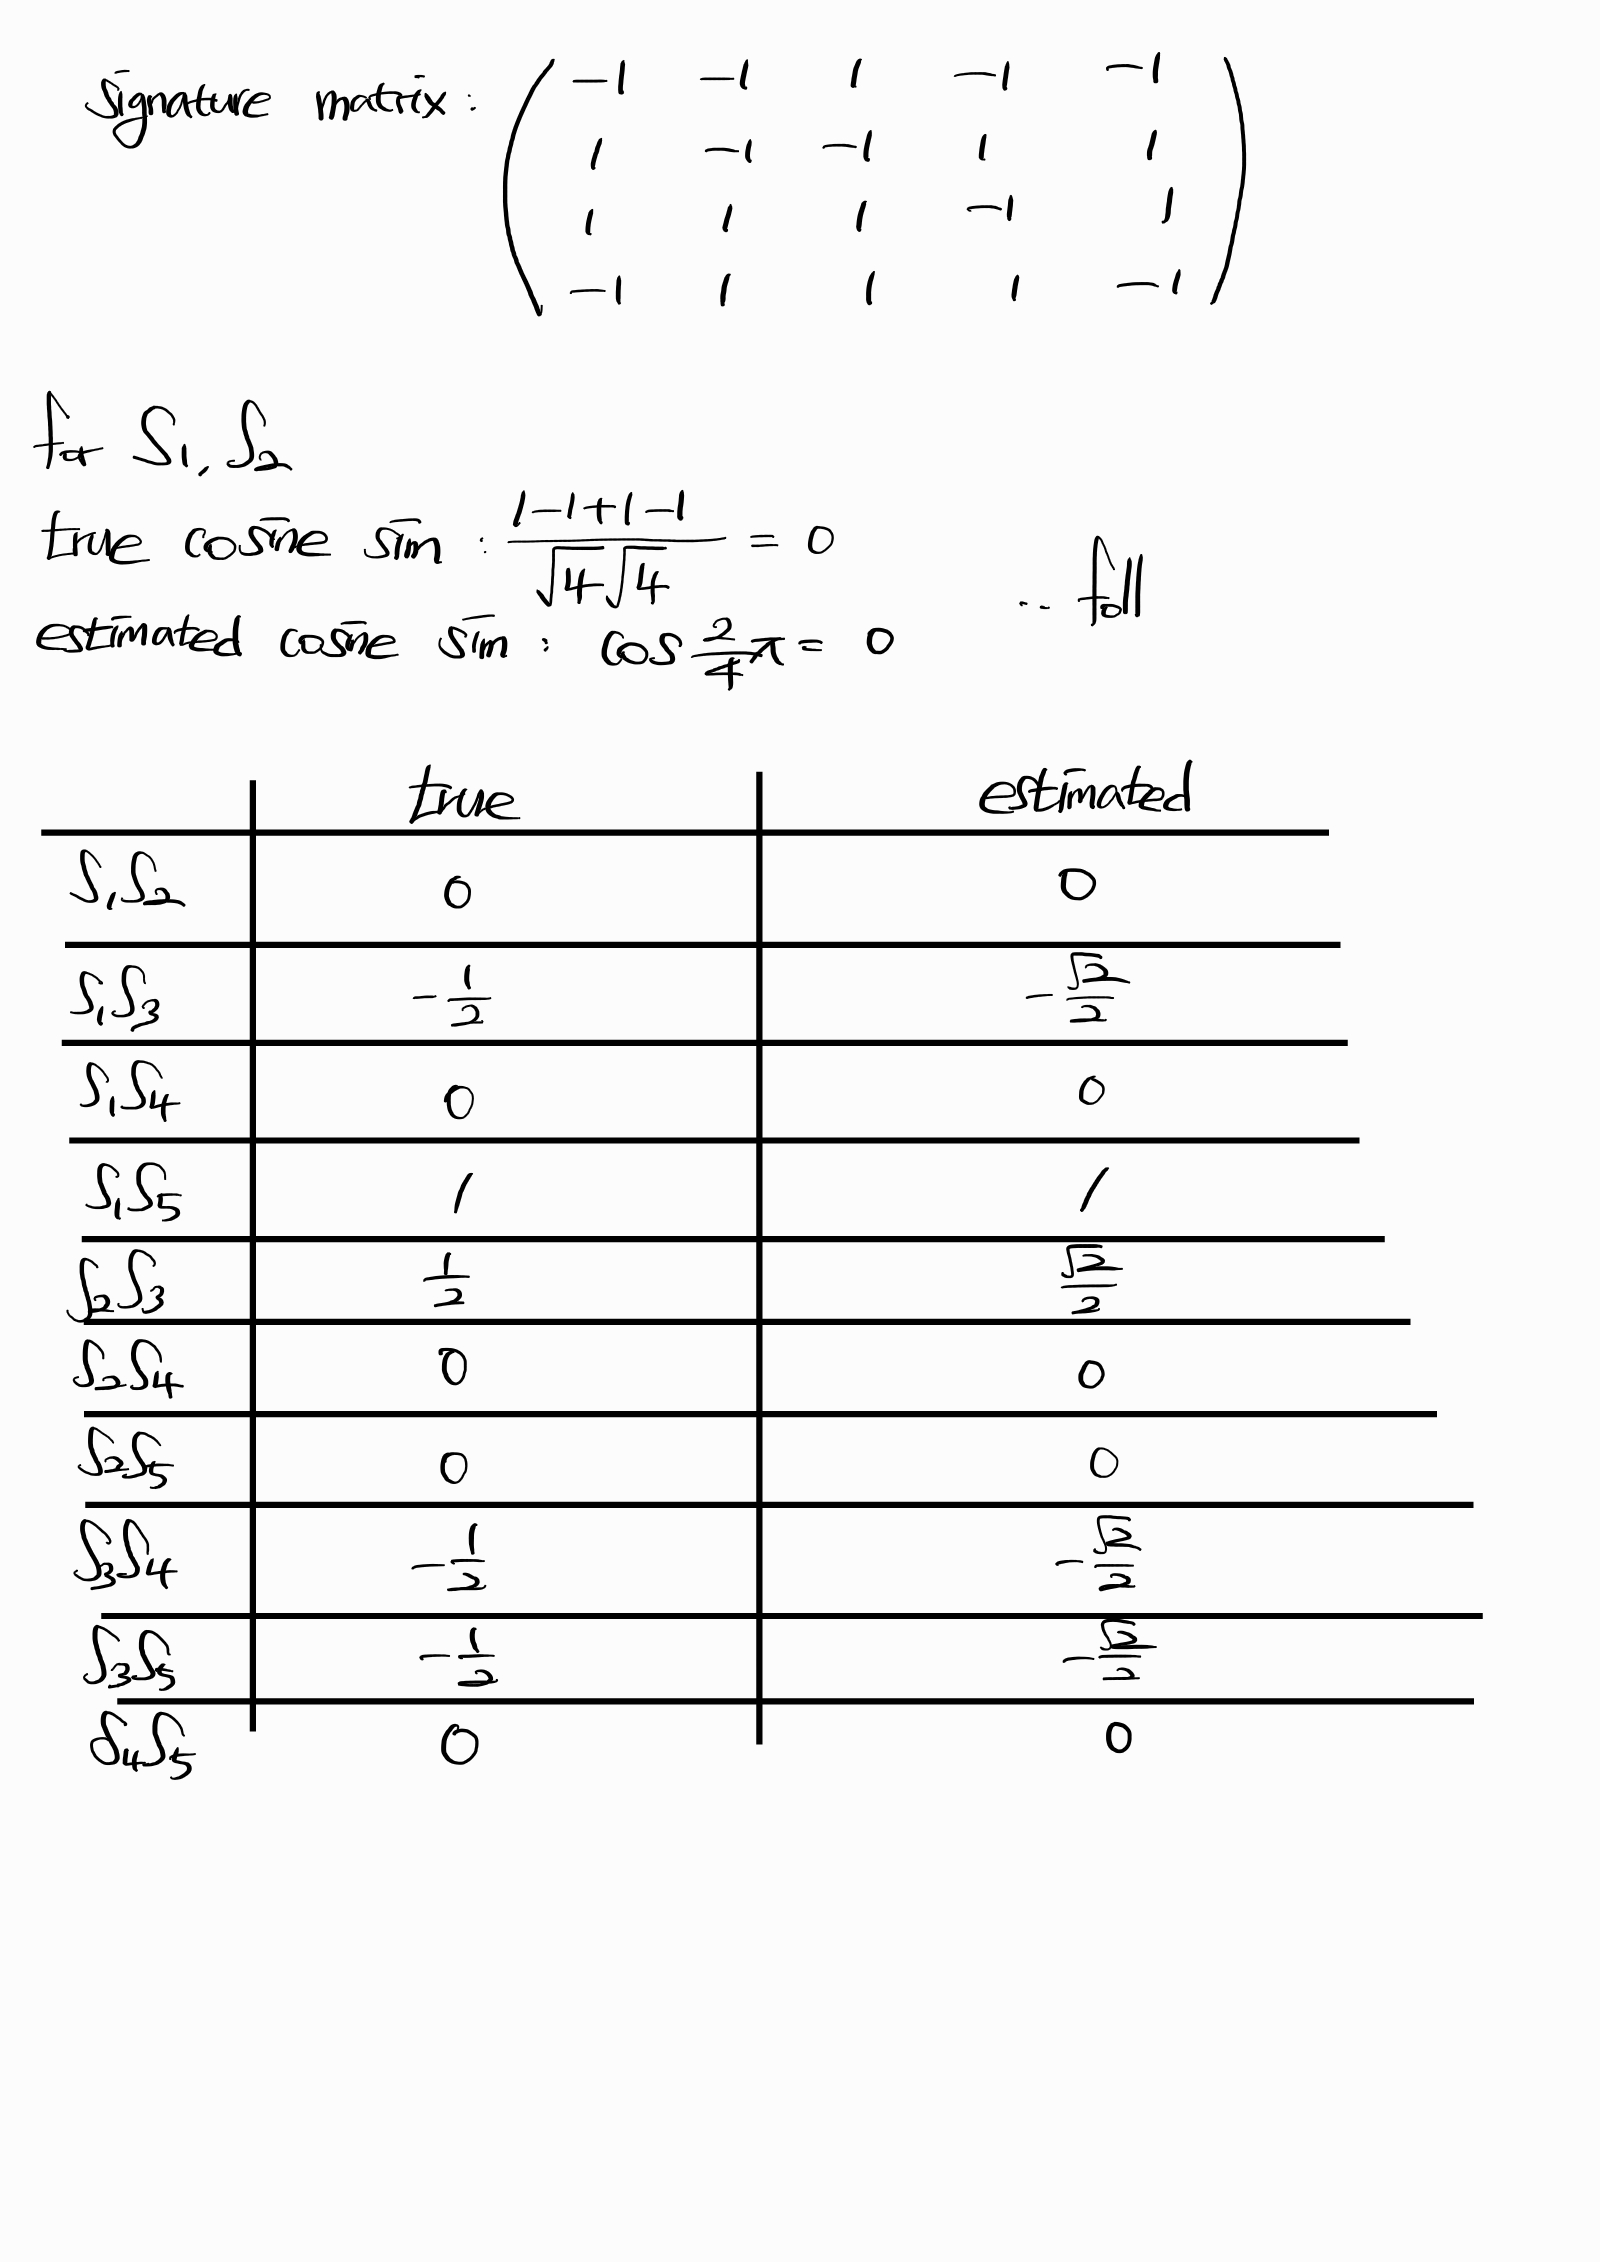 signature matrix : ( -1 -1 1 -1 -1
1 -1 -1 1 1
1 1 1 -1 1
-1 1 1 1 -1 )
for S₁, S₂
true cosine sim : (1-1+1-1)/(√4 √4) = 0
estimated cosine sim : cos 2/4 π = 0 ... full
true estimated
S₁S₂ 0 0
S₁S₃ -1/2 -√2/2
S₁S₄ 0 0
S₁S₅ 1 1
S₂S₃ 1/2 √2/2
S₂S₄ 0 0
S₂S₅ 0 0
S₃S₄ -1/2 -√2/2
S₃S₅ -1/2 -√2/2
S₄S₅ 0 0